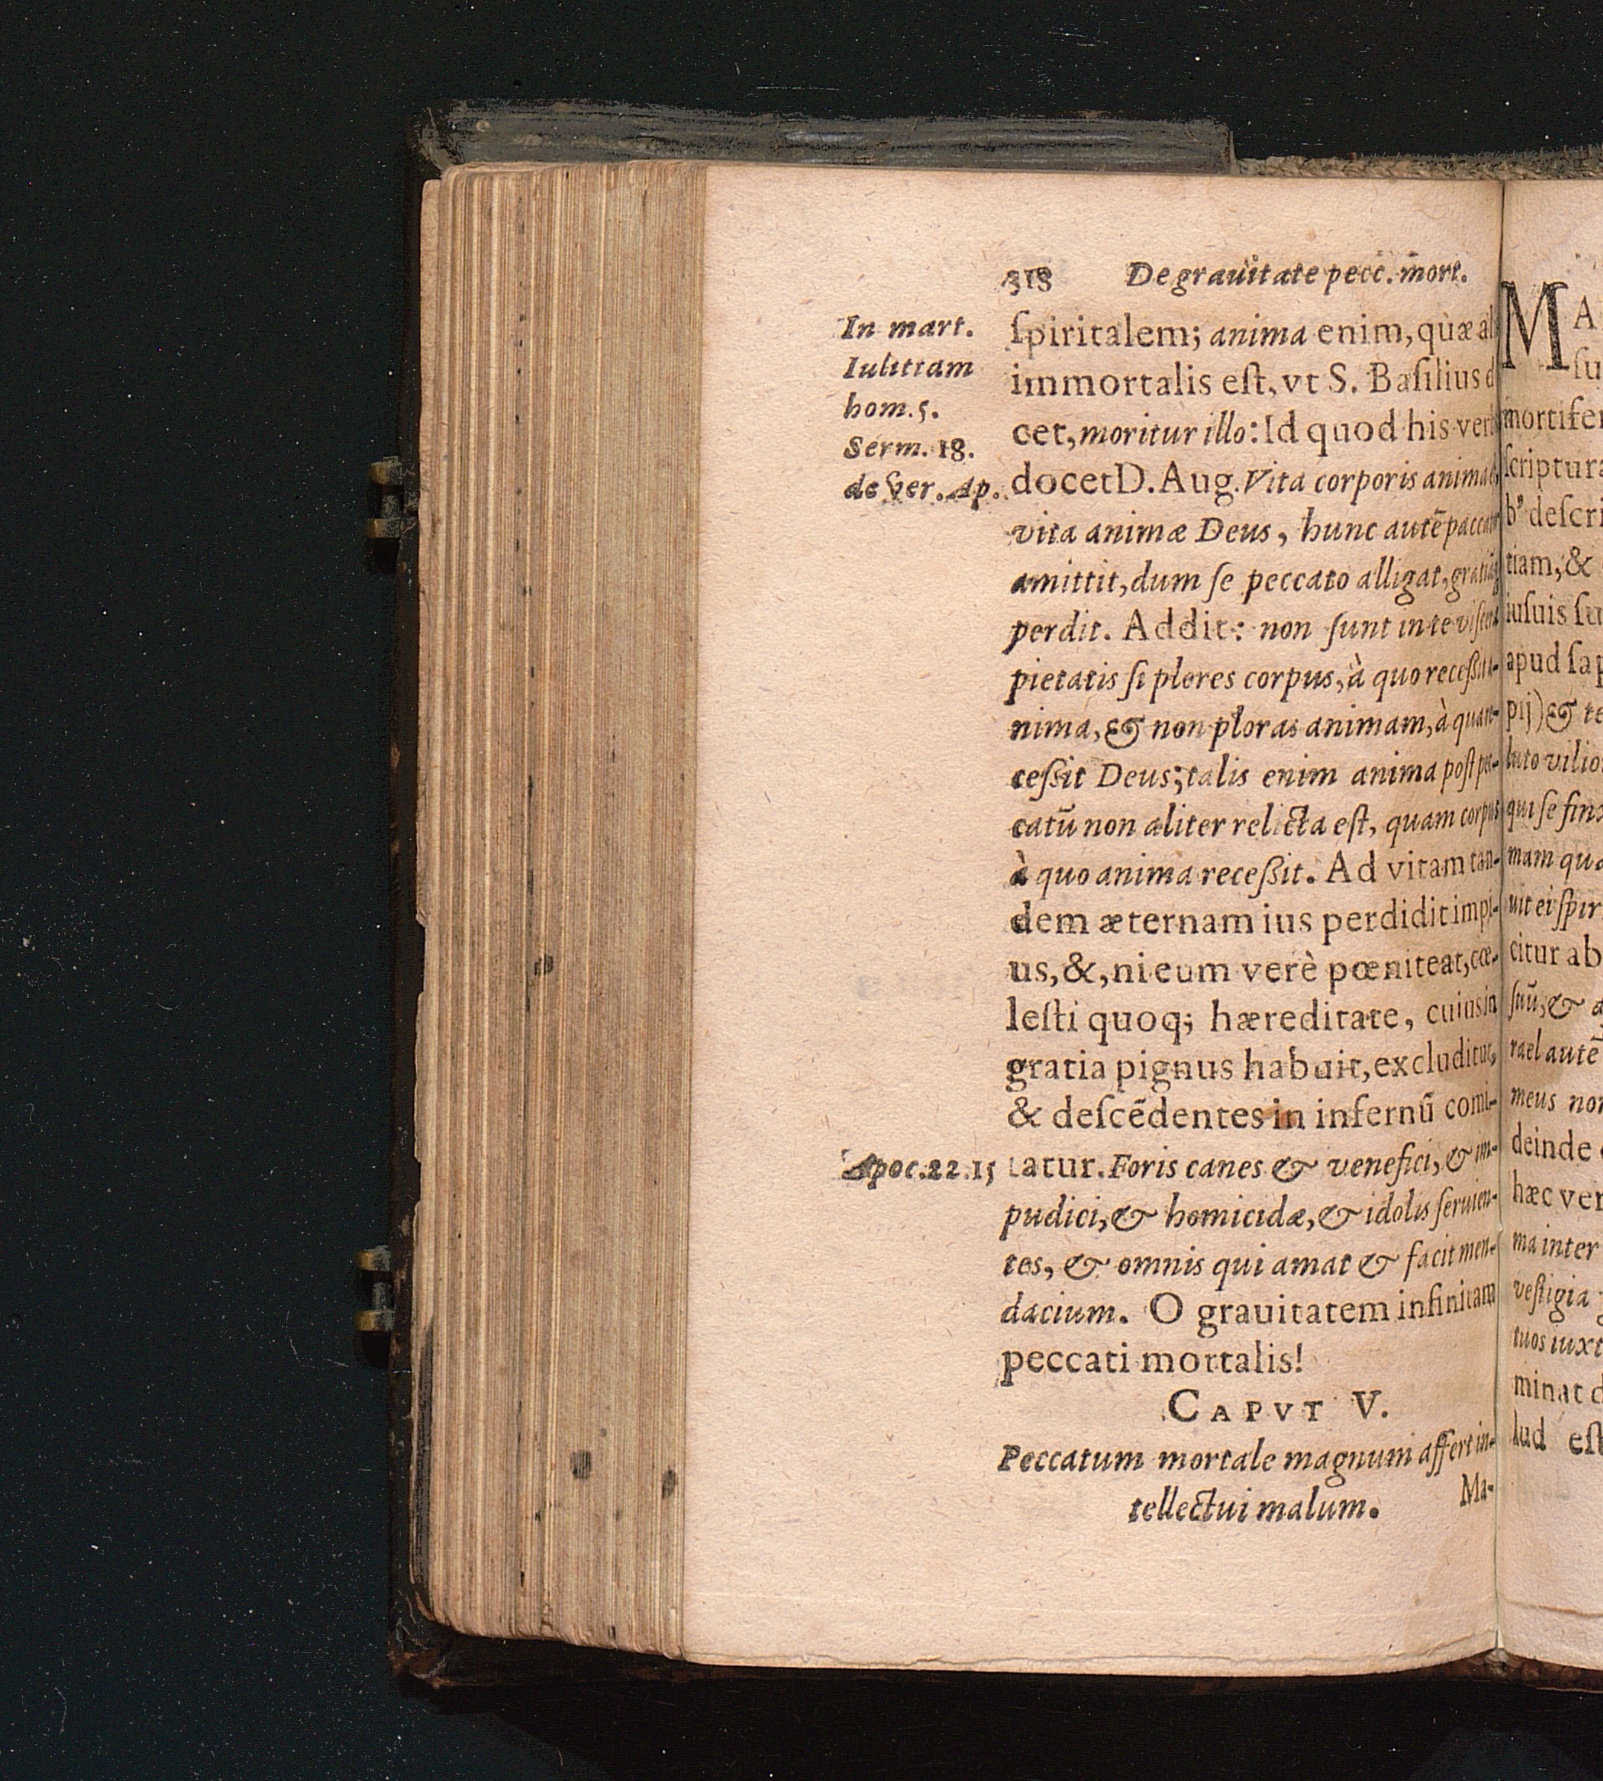 318 De grauitate pecc. mort.
In mart.
Iulittam
hom. 5.
Serm. 18.
de ver. Ap.
ſpiritalem; anima enim, quæ
immortalis eſt, vt S. Baſilius
cet, moritur illo: Id quod his
docet D. Aug. Vita corporis anima
vita animæ Deus, hunc autē
amittit, dum ſe peccato alligat,
perdit. Addit: non ſunt in te
pietatis ſi plores corpus, à quo receßit
nima, & non ploras animam, à
ceßit Deus; talis enim anima poſt pec-
catū non aliter relicta eſt, quam corpus
à quo anima receßit. Ad vitam tan-
dem æternam ius perdidit impi-
us, &, ni eum verè pœniteat, cœ-
leſti quoq; hæreditate, cuius in
gratia pignus habuit, excluditur,
& deſcēdentes in infernū comi-
Apoc. 22. 15
tatur. Foris canes & venefici, & im-
pudici, & homicidæ, & idolis ſeruien-
tes, & omnis qui amat & facit men-
dacium. O grauitatem infinitam
peccati mortalis!
CAPVT V.
Peccatum mortale magnum affert in-
tellectui malum.
Ma-
MA
ſu
mortifer
ſcriptura
b⁹ deſcri
tiam, &
iuſuis ſu
apud ſap
pij) & te
luto vilio
qui ſe finx
mam qua
uit ei ſpir
citur ab
ſuū, & a
rael autē
meus non
deinde
hæc ver
ma inter
veſtigia
tuos iuxt
minat d
lud eſt